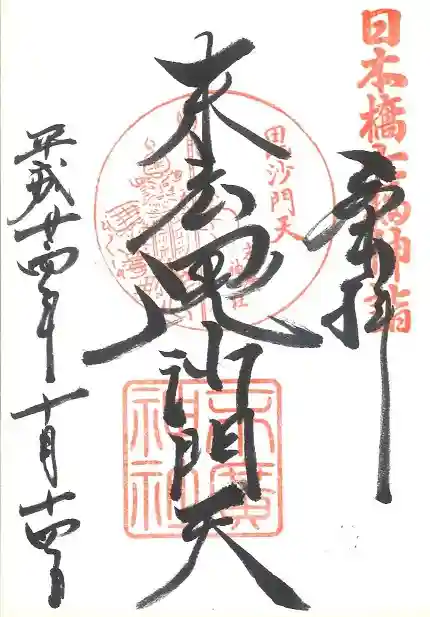 日本橋七福神詣
奉拝
毘沙門天
末廣神社
末広毘沙門天
末廣神社
平成廿四年十月十四日